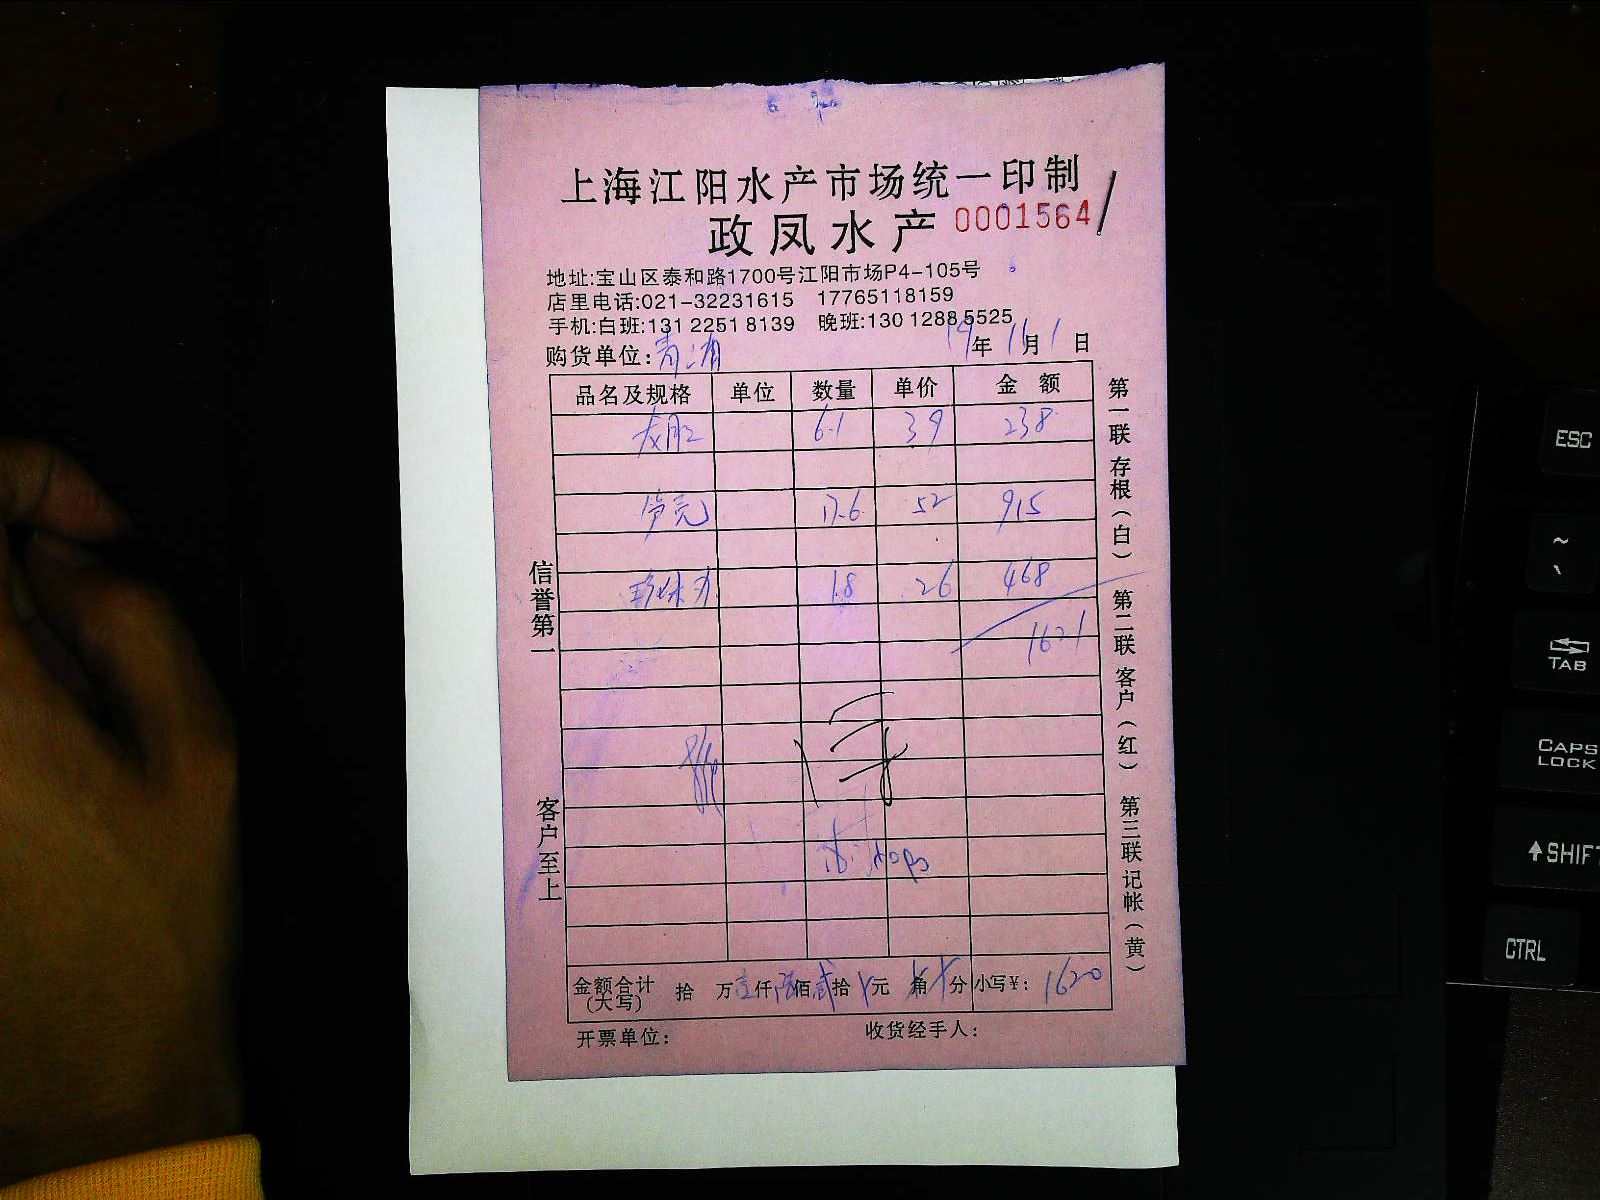 上海江阳水产市场统一印制
政凤水产 0001564
地址:宝山区泰和路1700号江阳市场P4-105号
店里电话:021-32231615 17765118159
手机:白班:131 2251 8139 晚班:130 1288 5525
购货单位: 青浦 19年 11月 1日
品名及规格 单位 数量 单价 金额
6.1 39 238
笋壳 17.6 52 915
18 26 468
1621
金额合计(大写) 拾 万壹仟陆佰贰拾 元 角 分 小写¥: 1620
开票单位: 收货经手人:
信誉第一
客户至上
第一联 存根(白) 第二联 客户(红) 第三联 记帐(黄)
ESC
~
TAB
CAPS
LOCK
SHIFT
CTRL